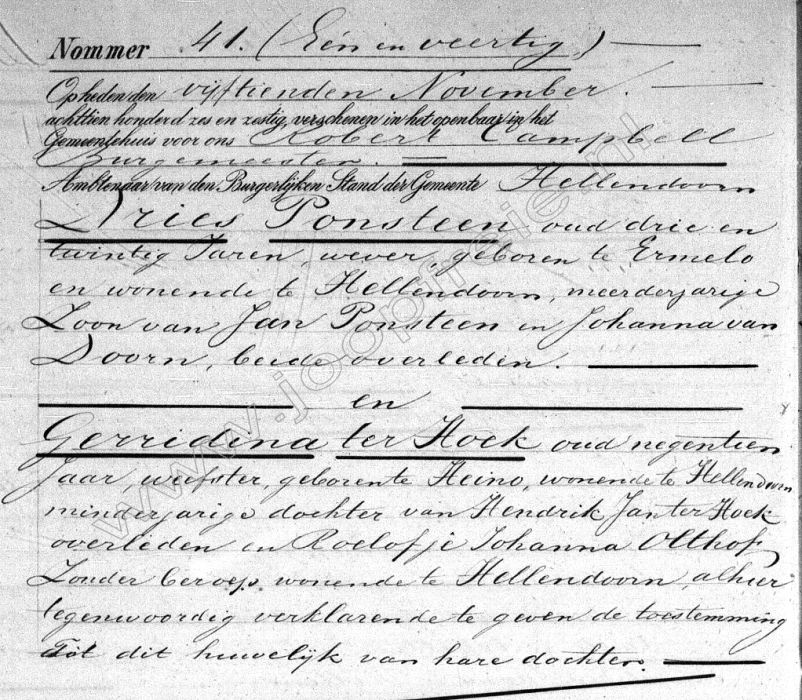 Nommer 41. (Eén en veertig)
Op heden den vijftienden November.
achttien honderd zes en zestig, verschenen in het openbaar in het
Gemeentehuis voor ons Robert Campbell
Burgemeester.
Ambtenaar van den Burgerlijken Stand der Gemeente Hellendoorn
Dries Ponsteen oud drie en
twintig Jaren, wever, geboren te Ermelo
en wonende te Hellendoorn, meerderjarige
Zoon van Jan Ponsteen en Johanna van
Doorn, beide overleden.
en
Gerridina ter Hoek oud negentien
Jaar, weefster, geboren te Heino, wonende te Hellendoorn
minderjarige dochter van Hendrik Jan ter Hoek
overleden en Roelofje Johanna Olthof,
Zonder beroep, wonende te Hellendoorn, alhier
tegenwoordig verklarende te geven de toestemming
Tot dit huwelijk van hare dochter.